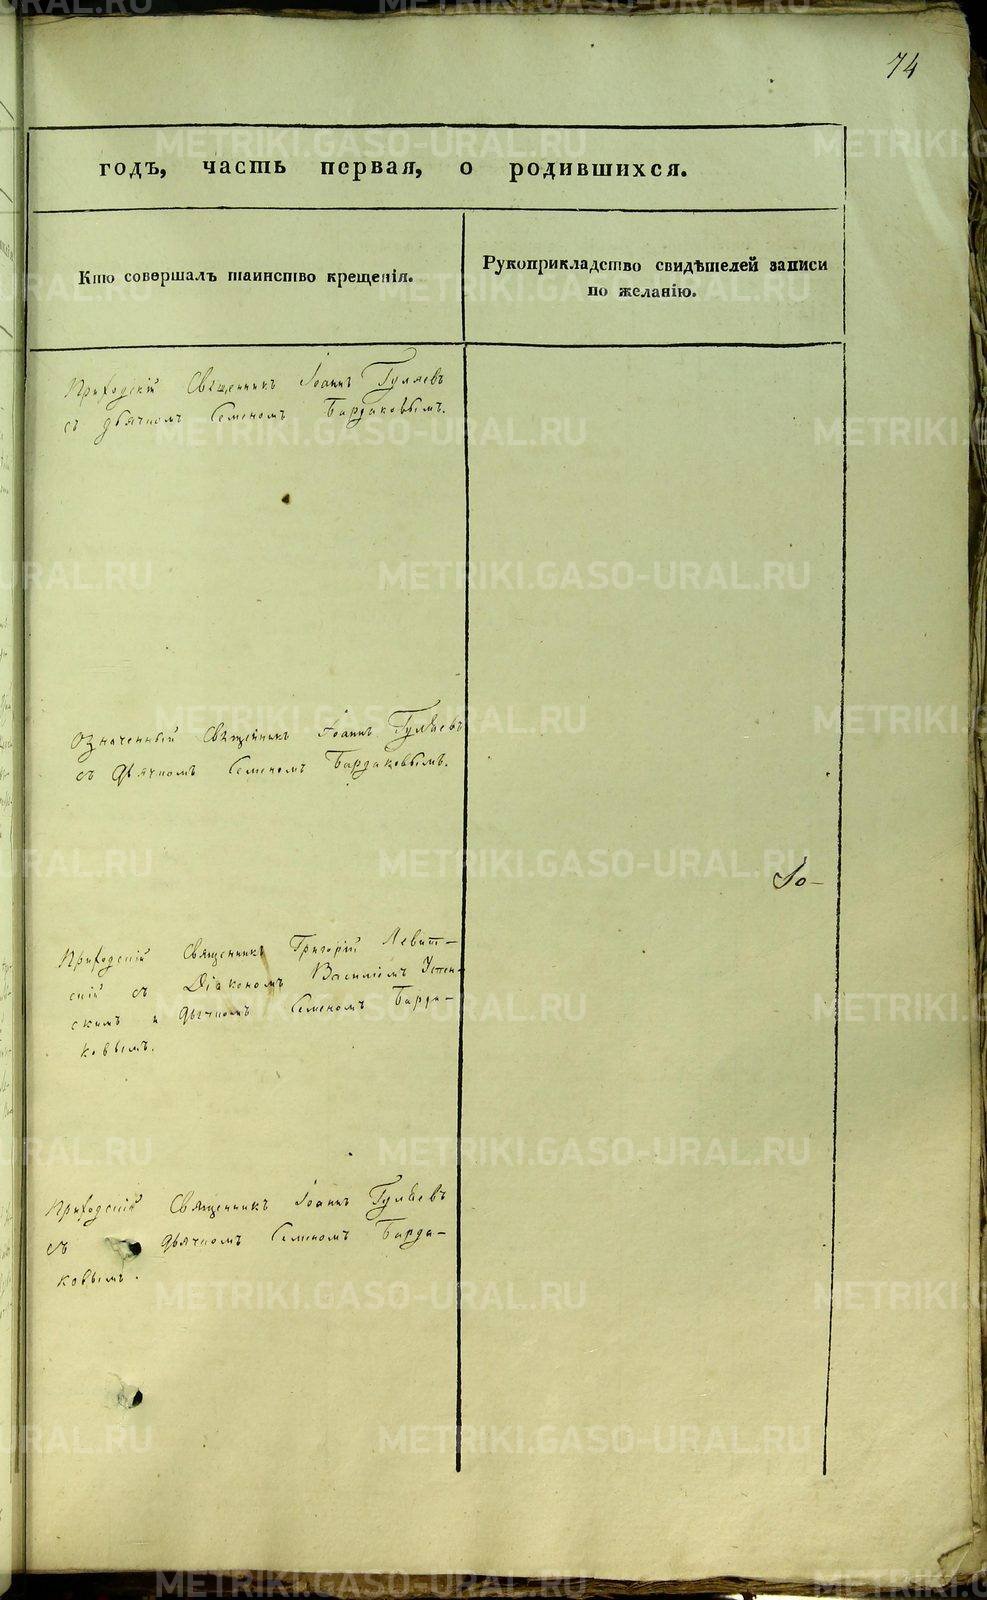 74
годъ, часть первая, о родившихся.
Кто совершалъ таинство крещенія.
Рукоприкладство свидѣтелей записи
по желанію.
Приходскій Священникъ Іоаннъ Гуляевъ
съ дьячкомъ Семеномъ Бардаковымъ.
Означенный Священникъ Іоаннъ Гуляевъ
съ Дьячкомъ Семеномъ Бардаковымъ.
Приходскій Священникъ Григорій Левит-
скій съ Діакономъ Василіемъ Успен-
скимъ и Дьячкомъ Семеномъ Барда-
ковымъ.
Приходскій Священникъ Іоаннъ Гуляевъ
съ дьячкомъ Семеномъ Барда-
ковымъ.
METRIKI.GASO-URAL.RU